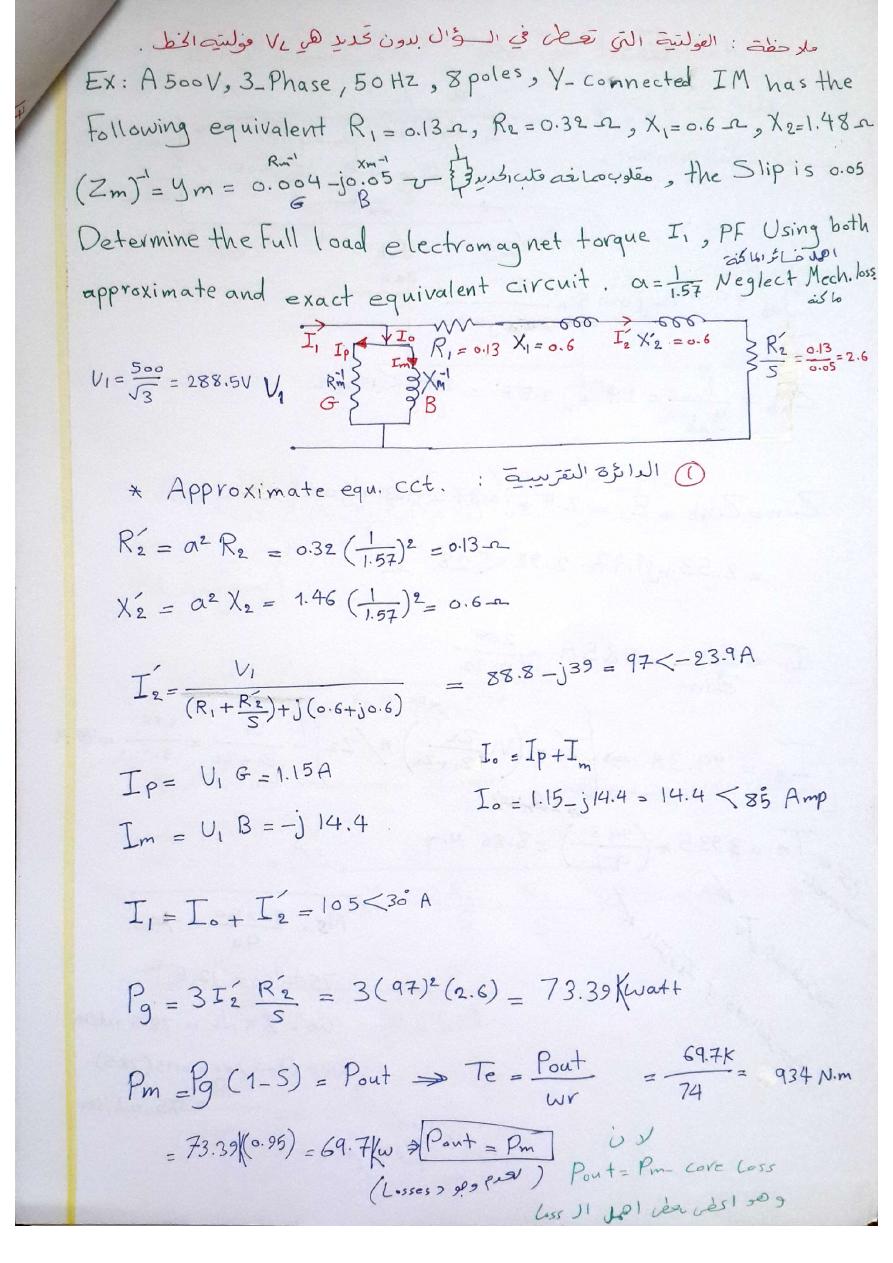 ملاحظة : الفولتية التي تعطى في السؤال بدون تحديد هي VL فولتية الخط .
Ex: A 500V, 3-Phase, 50 Hz, 8 poles, Y-connected IM has the
Following equivalent R1 = 0.13 Ω, R2 = 0.32 Ω, X1 = 0.6 Ω, X2 = 1.48 Ω
Rm⁻¹ Xm⁻¹
(Zm)⁻¹ = Ym = 0.004 - j0.05 مقلوب ممانعة قلب الحديد , the Slip is 0.05
G B
Determine the Full load electromagnet torque I1, PF Using both
approximate and exact equivalent circuit. a = 1/1.57 Neglect Mech. loss
I1 Ip Io Im R1 = 0.13 X1 = 0.6 I2′ X2′ = 0.6 R2′/S = 0.13/0.05 = 2.6
V1 = 500/√3 = 288.5V V1 Rm⁻¹ Xm⁻¹
G B
* Approximate equ. cct. : الدائرة التقريبية ①
R2′ = a² R2 = 0.32 (1/1.57)² = 0.13 Ω
X2′ = a² X2 = 1.46 (1/1.57)² = 0.6 Ω
I2′ = V1/((R1 + R2′/S) + j(0.6+j0.6)) = 88.8 - j39 = 97 < -23.9 A
Io = Ip + Im
Ip = V1 G = 1.15 A
Io = 1.15 - j14.4 = 14.4 < 85° Amp
Im = V1 B = -j 14.4
I1 = Io + I2′ = 105 < 30° A
Pg = 3 I2′ R2′/S = 3(97)² (2.6) = 73.39 Kwatt
Pm = Pg (1-S) = Pout ⇒ Te = Pout/wr = 69.7K/74 = 934 N.m
= 73.39K(0.95) = 69.7Kw ⇒ Pout = Pm
لان
(لعدم وجود Losses)
Pout = Pm - core loss
اهمل ال loss